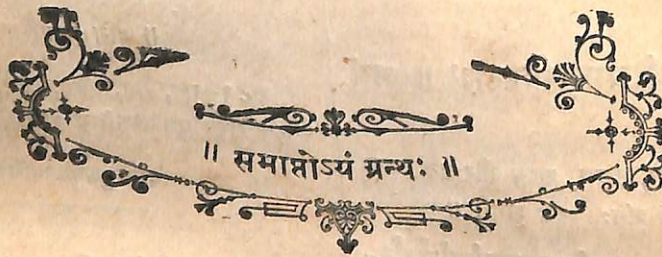 ॥ समाप्तोऽयं ग्रन्थः ॥